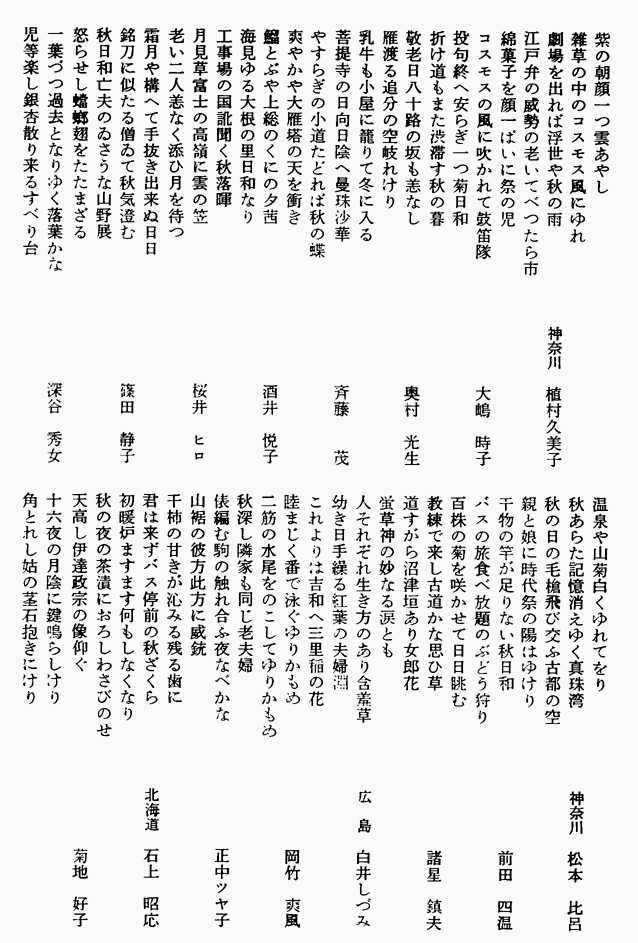 紫の朝顔一つ雲あやし
雑草の中のコスモス風にゆれ
劇場を出れば浮世や秋の雨
神奈川 植村久美子
江戸弁の威勢の老いてべつたら市
綿菓子を顔一ぱいに祭の児
コスモスの風に吹かれて鼓笛隊
大嶋 時子
投句終へ安らぎ一つ菊日和
折け道もまた渋滞す秋の暮
敬老日八十路の坂も恙なし
奥村 光生
雁渡る追分の空岐れけり
乳牛も小屋に籠りて冬に入る
菩提寺の日向日陰へ曼珠沙華
斉藤 茂
やすらぎの小道たどれば秋の蝶
爽やかや大雁塔の天を衝き
とぶや上総のくにの夕茜
酒井 悦子
海見ゆる大根の里日和なり
工事場の国訛聞く秋落暉
月見草富士の高嶺に雲の笠
桜井 ヒロ
老い二人恙なく添ひ月を待つ
霜月や構へて手抜き出来ぬ日日
銘刀に似たる僧ゐて秋気澄む
篠田 静子
秋日和亡夫のゐさうな山野展
怒らせし蟷螂翅をたたまざる
一葉づつ過去となりゆく落葉かな
深谷 秀女
児等楽し銀杏散り来るすべり台
温泉や山菊白くゆれてをり
秋あらた記憶消えゆく真珠湾
神奈川 松本 比呂
秋の日の毛槍飛び交ふ古都の空
親と娘に時代祭の陽はゆけり
干物の竿が足りない秋日和
前田 四温
バスの旅食べ放題のぶどう狩り
百株の菊を咲かせて日日眺む
教練で来し古道かな思ひ草
諸星 鎮夫
道すがら沼津垣あり女郎花
蛍草神の妙なる涙とも
人それぞれ生き方のあり含羞草
広島 白井しづみ
幼き日手繰る紅葉の夫婦淵
これよりは吉和へ三里稲の花
睦まじく番で泳ぐゆりかもめ
岡竹 爽風
二筋の水尾をのこしてゆりかもめ
秋深し隣家も同じ老夫婦
俵編む駒の触れ合ふ夜なべかな
正中ツヤ子
山裾の彼方此方に威銃
干柿の甘きが沁みる残る歯に
君は来ずバス停前の秋ざくら
北海道 石上 昭応
初暖炉ますます何もしなくなり
秋の夜の茶漬におろしわさびのせ
天高し伊達政宗の像仰ぐ
菊地 好子
十六夜の月陰に鍵鳴らしけり
角とれし姑の茎石抱きにけり